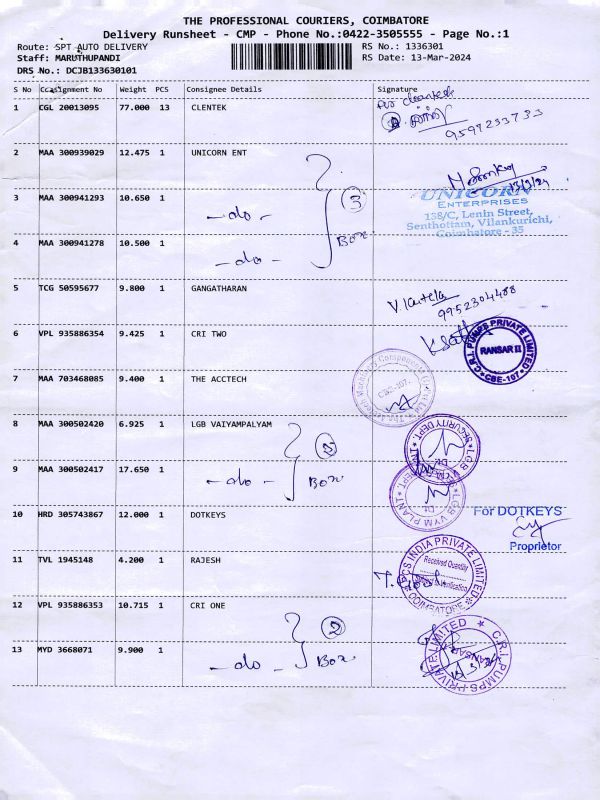 THE PROFESSIONAL COURIERS, COIMBATORE
Delivery Runsheet - CMP - Phone No.:0422-3505555 - Page No.:1
Route: SPT AUTO DELIVERY RS No.: 1336301
Staff: MARUTHUPANDI RS Date: 13-Mar-2024
DRS No.: DCJB133630101
S No Consignment No Weight PCS Consignee Details Signature
1 CGL 20013095 77.000 13 CLENTEK
9597233733
2 MAA 300939029 12.475 1 UNICORN ENT
13/3/24
3 MAA 300941293 10.650 1 -do- 3 Box
UNICORN
ENTERPRISES
138/C, Lenin Street,
Senthottam, Vilankurichi,
Coimbatore - 35
4 MAA 300941278 10.500 1 -do-
5 TCG 50595677 9.800 1 GANGATHARAN
9952304488
6 VPL 935886354 9.425 1 CRI TWO
C.R.I. PUMPS PRIVATE LIMITED
RANSAR II
CBE-107
7 MAA 703468085 9.400 1 THE ACCTECH
CBE-107.
8 MAA 300502420 6.925 1 LGB VAIYAMPALYAM
L.G.B VYM PLANT
SECURITY DEPT.
9 MAA 300502417 17.650 1 -do- 2 Box
L.G.B VYM PLANT
10 HRD 305743867 12.000 1 DOTKEYS
For DOTKEYS
Proprietor
11 TVL 1945148 4.200 1 RAJESH
INDIA PRIVATE LIMITED
Received Quantity
Verification
COIMBATORE
12 VPL 935886353 10.715 1 CRI ONE
2 Box
13 MYD 3668071 9.900 1 -do-
C.R.I. PUMPS PRIVATE LIMITED